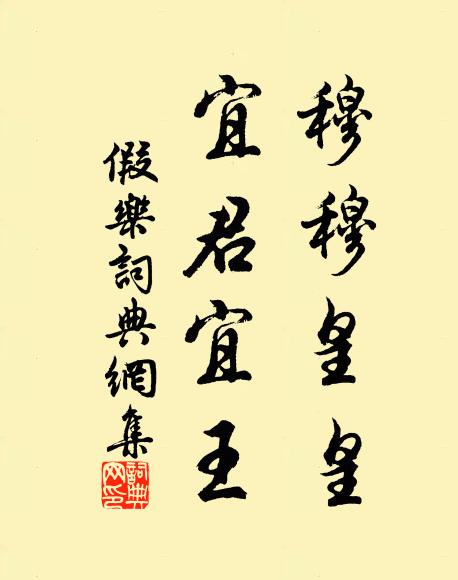 穆穆皇皇
宜君宜王
假樂詞典網集
詞典網印